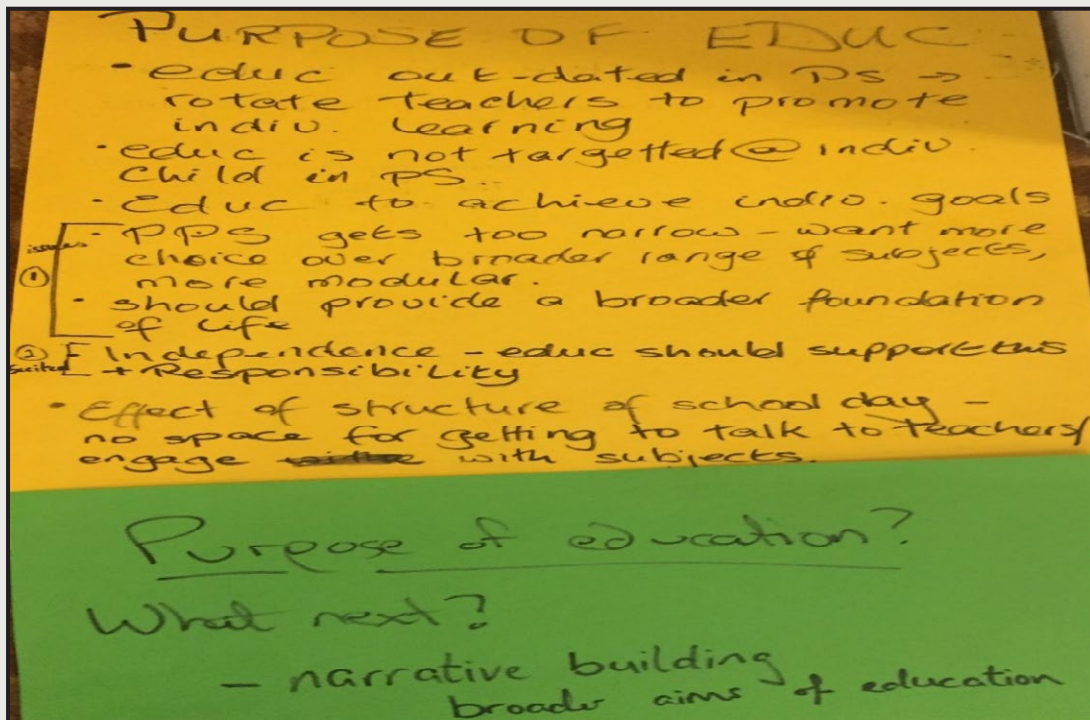 PURPOSE OF EDUC
• educ out-dated in PS →
rotate teachers to promote
indiv. learning
• educ is not targetted @ indiv.
child in PS.
• Educ to achieve indiv. goals
issues • PPS gets too narrow - want more
① choice over broader range of subjects,
more modular.
• should provide a broader foundation
of life
② [ Independence - educ should support this
+ Responsibility
• Effect of structure of school day -
no space for getting to talk to teachers/
engage with subjects.
Purpose of education?
What next?
- narrative building
broader aims of education